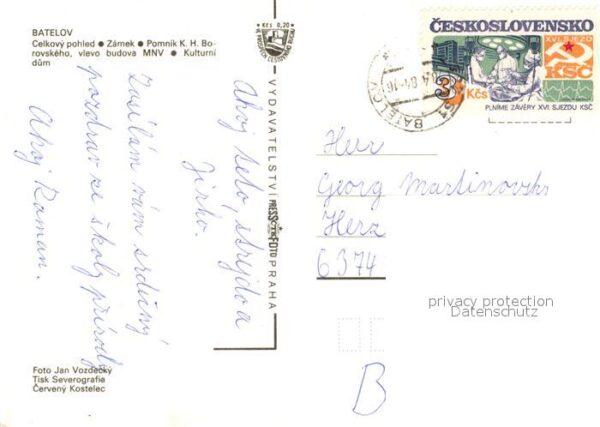 BATELOV
Celkový pohled ● Zámek ● Pomník K. H. Bo-
rovského, vlevo budova MNV ● Kulturní
dům
Kčs 0,20
ČESKOSLOVENSKO
XVI. SJEZD
KSČ
3 Kčs
PLNÍME ZÁVĚRY XVI. SJEZDU KSČ
BATELOV
Ahoj teto, strejdo a
Jirko.
Zasílám vám srdečný
pozdrav ze školy přírodě
Ahoj Roman.
VYDAVATELSTVÍ PRESSFOTO PRAHA
Herr
Georg Martinovsky
Herz
6374
privacy protection
Datenschutz
B
Foto Jan Vozdecký
Tisk Severografie
Červený Kostelec